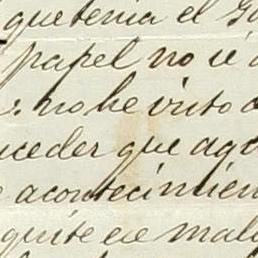 que tenia el Go
papel no ie a
s: no he visto o
uceder que aqu
e acontecimien
quite ese mal